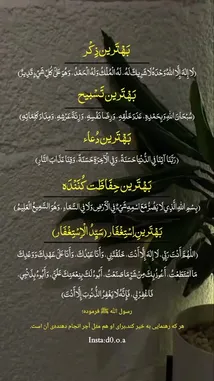 بَهْتَرین ذِکْر
(لَا إِلَهَ إِلَّا اللَّهُ وَحْدَهُ لَا شَرِيكَ لَهُ، لَهُ الْمُلْكُ وَلَهُ الْحَمْدُ، وَهُوَ عَلَى كُلِّ شَيْءٍ قَدِيرٌ)
بَهْتَرین تَسْبیح
(سُبْحَانَ اللَّهِ وَبِحَمْدِهِ، عَدَدَ خَلْقِهِ، وَرِضَا نَفْسِهِ، وَزِنَةَ عَرْشِهِ، وَمِدَادَ كَلِمَاتِهِ)
بَهْتَرین دُعاء
(رَبَّنَا آتِنَا فِي الدُّنْيَا حَسَنَةً، وَفِي الْآخِرَةِ حَسَنَةً، وَقِنَا عَذَابَ النَّارِ)
بَهْتَرین حِفاظَت کُنَنْدِه
(بِسْمِ اللَّهِ الَّذِي لَا يَضُرُّ مَعَ اسْمِهِ شَيْءٌ فِي الْأَرْضِ وَلَا فِي السَّمَاءِ، وَهُوَ السَّمِيعُ الْعَلِيمُ)
بَهْتَرین اِسْتِغْفَار (سَیِّدُ الْاِسْتِغْفَار)
(اللَّهُمَّ أَنْتَ رَبِّي، لَا إِلَهَ إِلَّا أَنْتَ، خَلَقْتَنِي، وَأَنَا عَبْدُكَ، وَأَنَا عَلَى عَهْدِكَ وَوَعْدِكَ
مَا اسْتَطَعْتُ، أَعُوذُ بِكَ مِنْ شَرِّ مَا صَنَعْتُ، أَبُوءُ لَكَ بِنِعْمَتِكَ عَلَيَّ، وَأَبُوءُ بِذَنْبِي،
فَاغْفِرْ لِي، فَإِنَّهُ لَا يَغْفِرُ الذُّنُوبَ إِلَّا أَنْتَ)
رسول الله ﷺ فرموده:
هر که رهنمایی به خیر کند،برای او هم مثل أجر انجام دهنده‌ی آن است.
Insta:d0.o.a